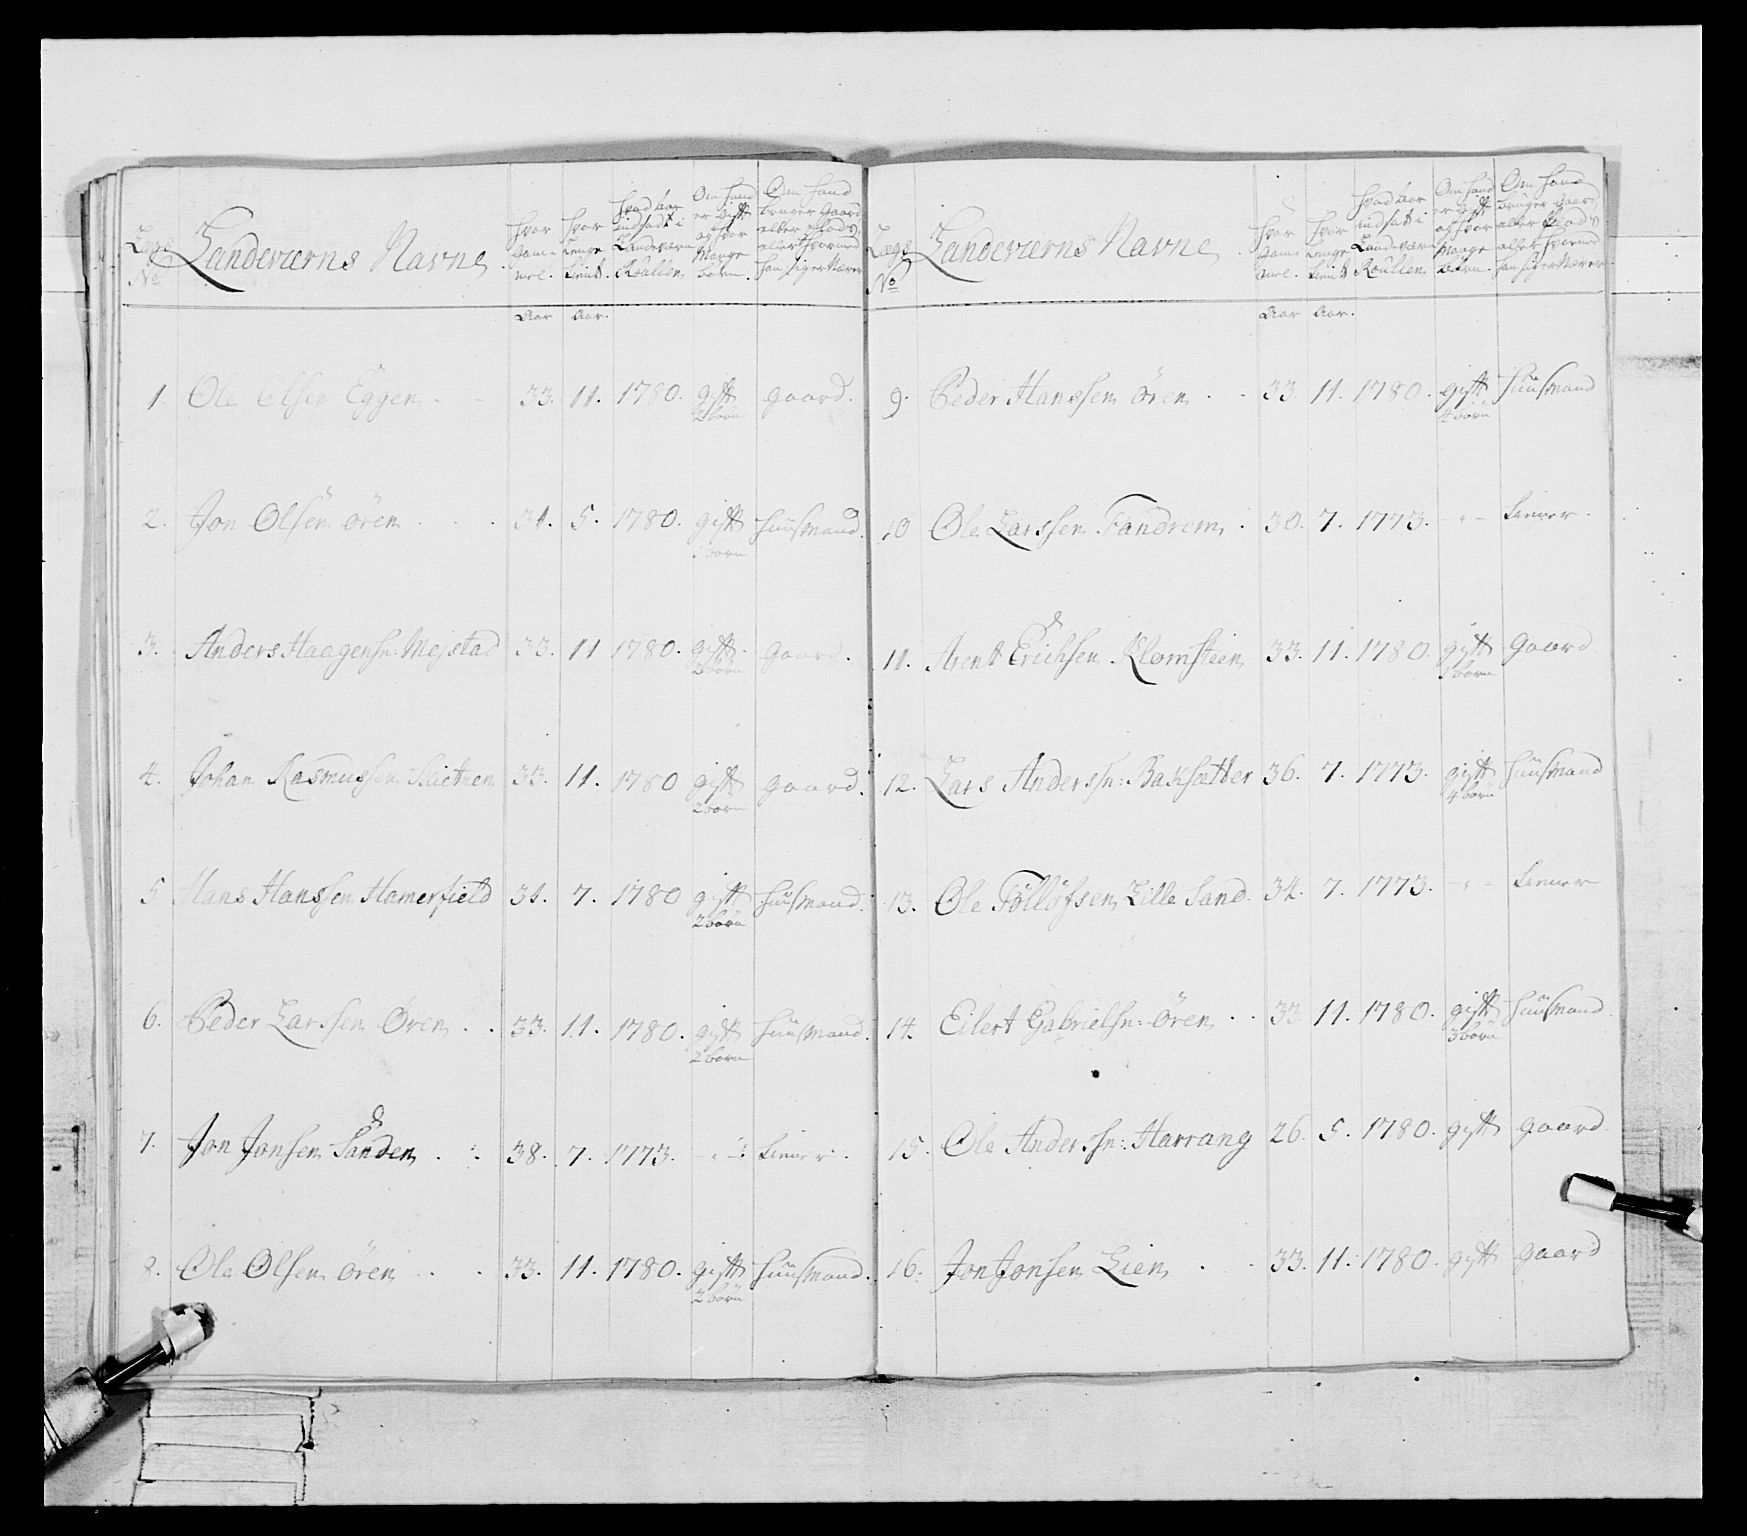 Lægs No Landeværns Navne. Hvor Gammel. Hvor Lenge tient. Hvad Aar indsadt i Landeværn Roullen Om Hand er gift og Hvor Mange børn. Om Hand bruger Gaard eller Plads, eller Hvormed Han siger Nærer
Aar Aar.
1. Ole Olsen Eggen 33. 11. 1780. gift 2 børn gaard.
2. Jon Olsen ören 31. 5. 1780. gift 1 børn huusmand.
3. Anders Haagensn: Mejstad 33. 11 1780. gift. 2 børn gaard.
4. Johan Rasmussen 33. 11. 1780 gift 2 børn gaard.
5 Hans Hanssen Hamerfield 31. 7. 1780 gift 2 børn huusmand.
6. Peder Larssen Ören 33. 11. 1780. gift 2 børn huusmand.
7. Jon Jonsen Sanden 38. 7. 1773. - " - tiener.
8. Ole Olsen ören 33. 11. 1780. gift 2 børn huusmand.
Lægs No Landeværns Navne Hvor Gammel. Hvor Lenge tient Hvad Aar indsat i Landeværn Roullen Om Hand er gift og Hvor Mange børn. Om Hand bruger Gaard, eller Plads, eller Hvormed Han siger Nærer
Aar Aar.
9. Peder Hanssen ören 33. 11. 1780. gift 4 børn huusmand
10 Ole Larssen Fandrem 30. 7. 1773. - " - tiener.
11. Arent Erichsen Klomsteen 33. 11. 1780. gift 1 børn Gaard
12. Lars Anderssn: Baksætter 36. 7. 1773. gift 4 børn huusmand
13. Ole Föllöfsen Lille Sand. 34. 7. 1773. - " - tiener
14. Eilert Gabrielsn: ören 33 11. 1780. gift 3 børn huusmand
15. Ole Anderssn: Harrang 26. 5. 1780. gift gaard
16. Jon Jonsen Lien 33. 11. 1780. gift gaard